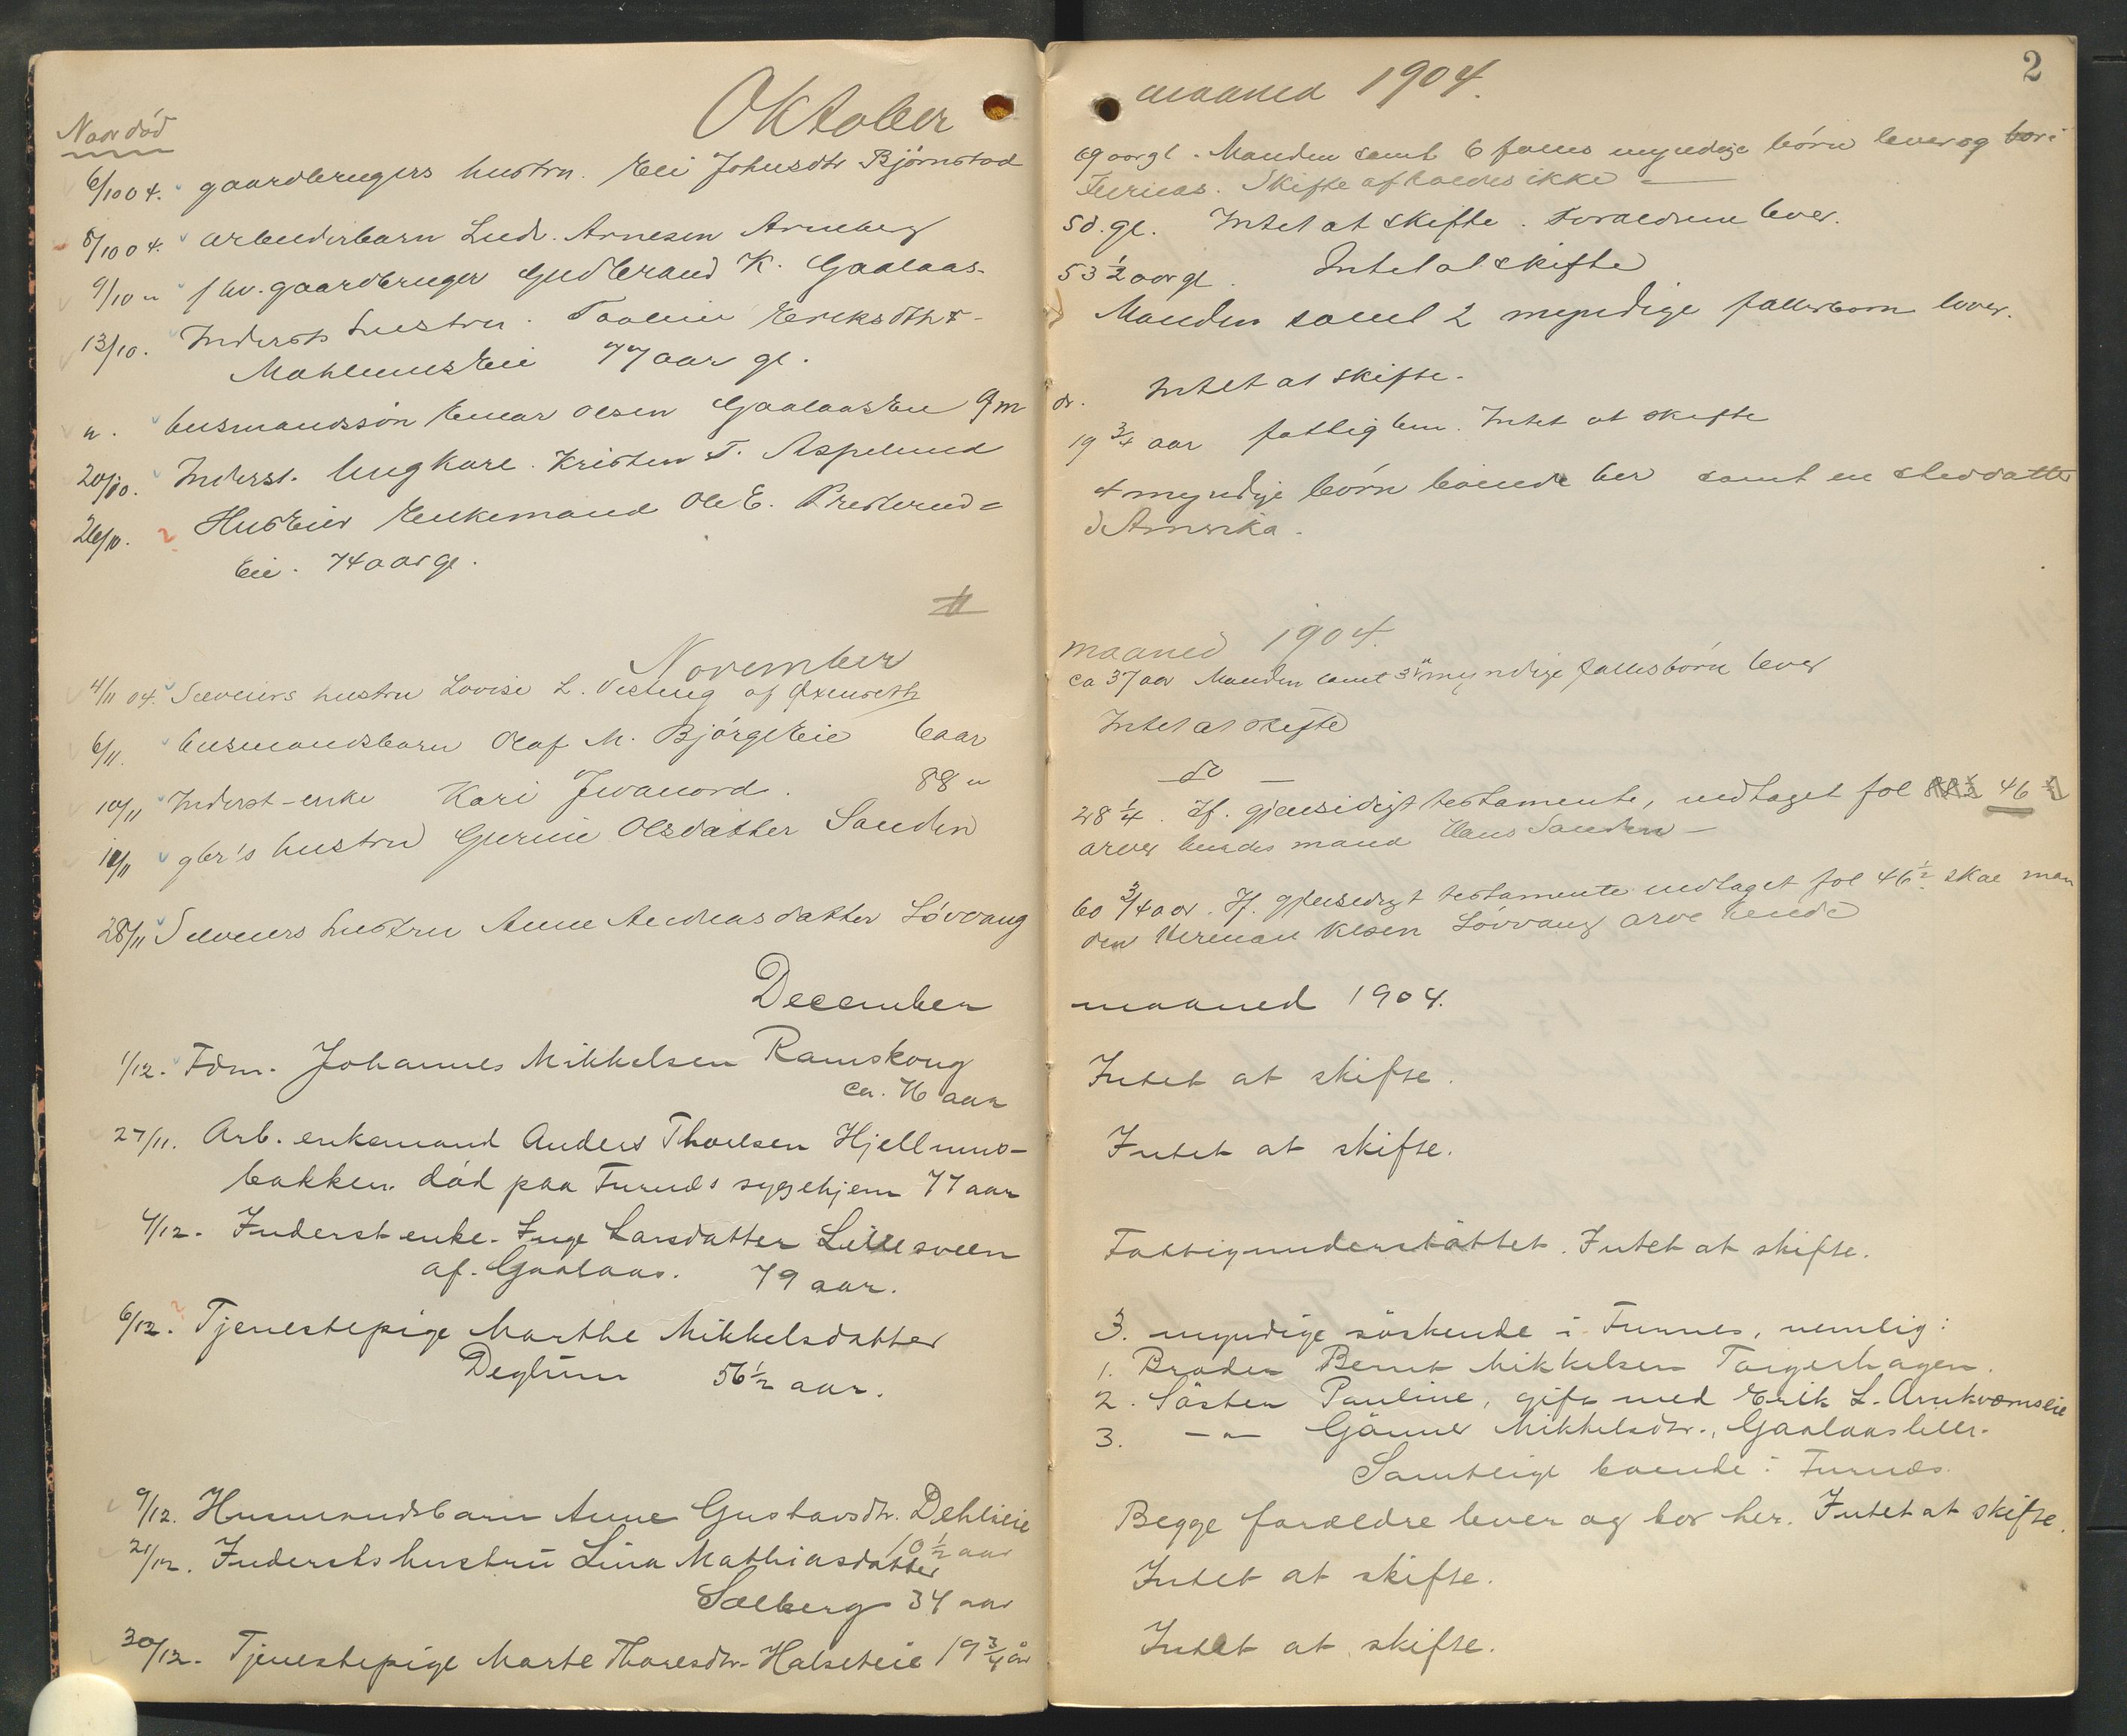 Oktober
Naar død
6/10 04. gaardbrugers hustru. Eli Johnsdtr Bjørnstad
8/10 04. arbeiderbarn Arnesen Arneberg
9/10 " fhv. gaardbruger Gudbrand K. Gaalaas.
13/10. Inderst hustru. Eriksdtr
77 aar gl.
". husmandssøn Einar Olsen Gaalaaseie 9 m
20/10. Inderst. Ungkarl. Kristen T. Aspelund
26/10. ? Enkemand Ole E.
eie. 74 aar gl.
November
4/11 04. Selveiers hustru Lovise L. af
6/11. husmandsbarn Olaf M. Bjørgeeie 6 aar
10/11 Inderst-enke Kari 88 "
gbr's hustru Gurine Olsdatter Sanden
28/11 Selveiers hustru Anne Andreasdatter Løvvang
December
1/12. Fdm. Johannes Mikkelsen Ramskoug
ca. 76 aar
27/11. Arb. enkemand Anders Thorlsen Hjellmus-
bakken. død paa Furnes sygehjem 77 aar
4/12. Inderst enke. Inge Larsdatter Lillesveen
af. Gaalaas. 79 aar.
6/12. ? Tjenestepige Marthe Mikkelsdatter
Deglum 56 1/2 aar.
9/12. Husmandsbarn Anne Gustavsdtr. Dehlieie
10 1/2 aar
21/12. Inderstshustru Lina Mathiasdatter
Sælberg 34 aar
30/12. Tjenestepige Marte Thoresdtr. Halseteie 19 3/4 år
2
maaned 1904.
69 aar gl. Manden samt 6 fælles myndige børn lever og bor i
Furnes. Skifte afholdes ikke
5 d. gl. Intet at skifte. Forældrene lever.
53 1/2 aar gl. Intet at skifte
Manden samt 2 myndige fællesbørn lever.
dr. Intet at skifte.
19 3/4 aar fattiglem. Intet at skifte
4 myndige børn boende her samt en steddatter
i Amerika.
maaned 1904.
ca 37 aar Manden samt 3 umyndige fællesbørn lever
Intet at skifte
do
28 1/4. If. gjensidigt testamente, indtaget fol 46
arver hendes mand Hans Sanden
60 3/4 aar. If. gjensidigt testamente indtaget fol 46 1/2 skal man
den Herman Løvvang arve hende
maaned 1904.
Intet at skifte.
Intet at skifte.
Fattigunderstøttet. Intet at skifte.
3. myndige søskende i Furnes, nemlig:
1. Broder Bernt Mikkelsen Torgerhagen.
2. Søster Pauline, gift med Erik L. Arnkværnseie
3. — " — Gønner Mikkelsdtr., Gaalaas
Samtlige boende i Furnes.
Begge forældre lever og bor her. Intet at skifte.
Intet at skifte.
Intet at skifte.